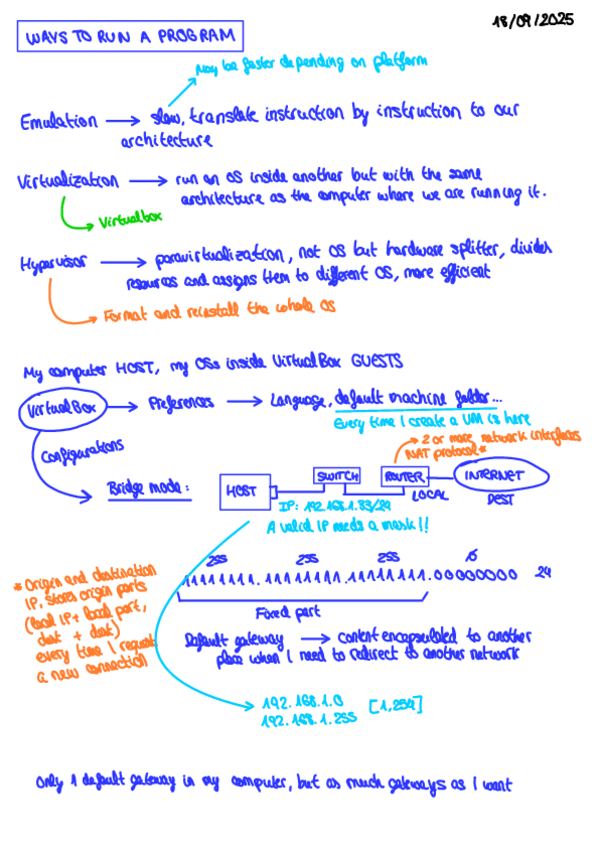 18/09/2025
WAYS TO RUN A PROGRAM
May be faster depending on platform
Emulation → slow, translate instruction by instruction to our
architecture
Virtualization → run an OS inside another but with the same
architecture as the computer where we are running it.
Virtualbox
Hypervisor → paravirtualization, not OS but hardware splitter, divides
resources and assigns them to different OS, more efficient
Format and reinstall the whole OS
My computer HOST, my OSs inside VirtualBox GUESTS
VirtualBox → Preferences → Language, default machine folder...
Every time I create a VM is here
Configurations
2 or more network interfaces
NAT protocol*
Bridge mode:
HOST
SWITCH
ROUTER
INTERNET
LOCAL
DEST
IP: 192.168.1.83/24
A valid IP needs a mask!!
255 255 255 0
11111111.11111111.11111111.00000000 24
Fixed part
* Origin and destination
IP, stores origin ports
(local IP + local port,
dest + dest)
every time I request
a new connection
Default gateway → content encapsulated to another
place when I need to redirect to another network
192.168.1.0 [1,254]
192.168.1.255
Only 1 default gateway in my computer, but as much gateways as I want